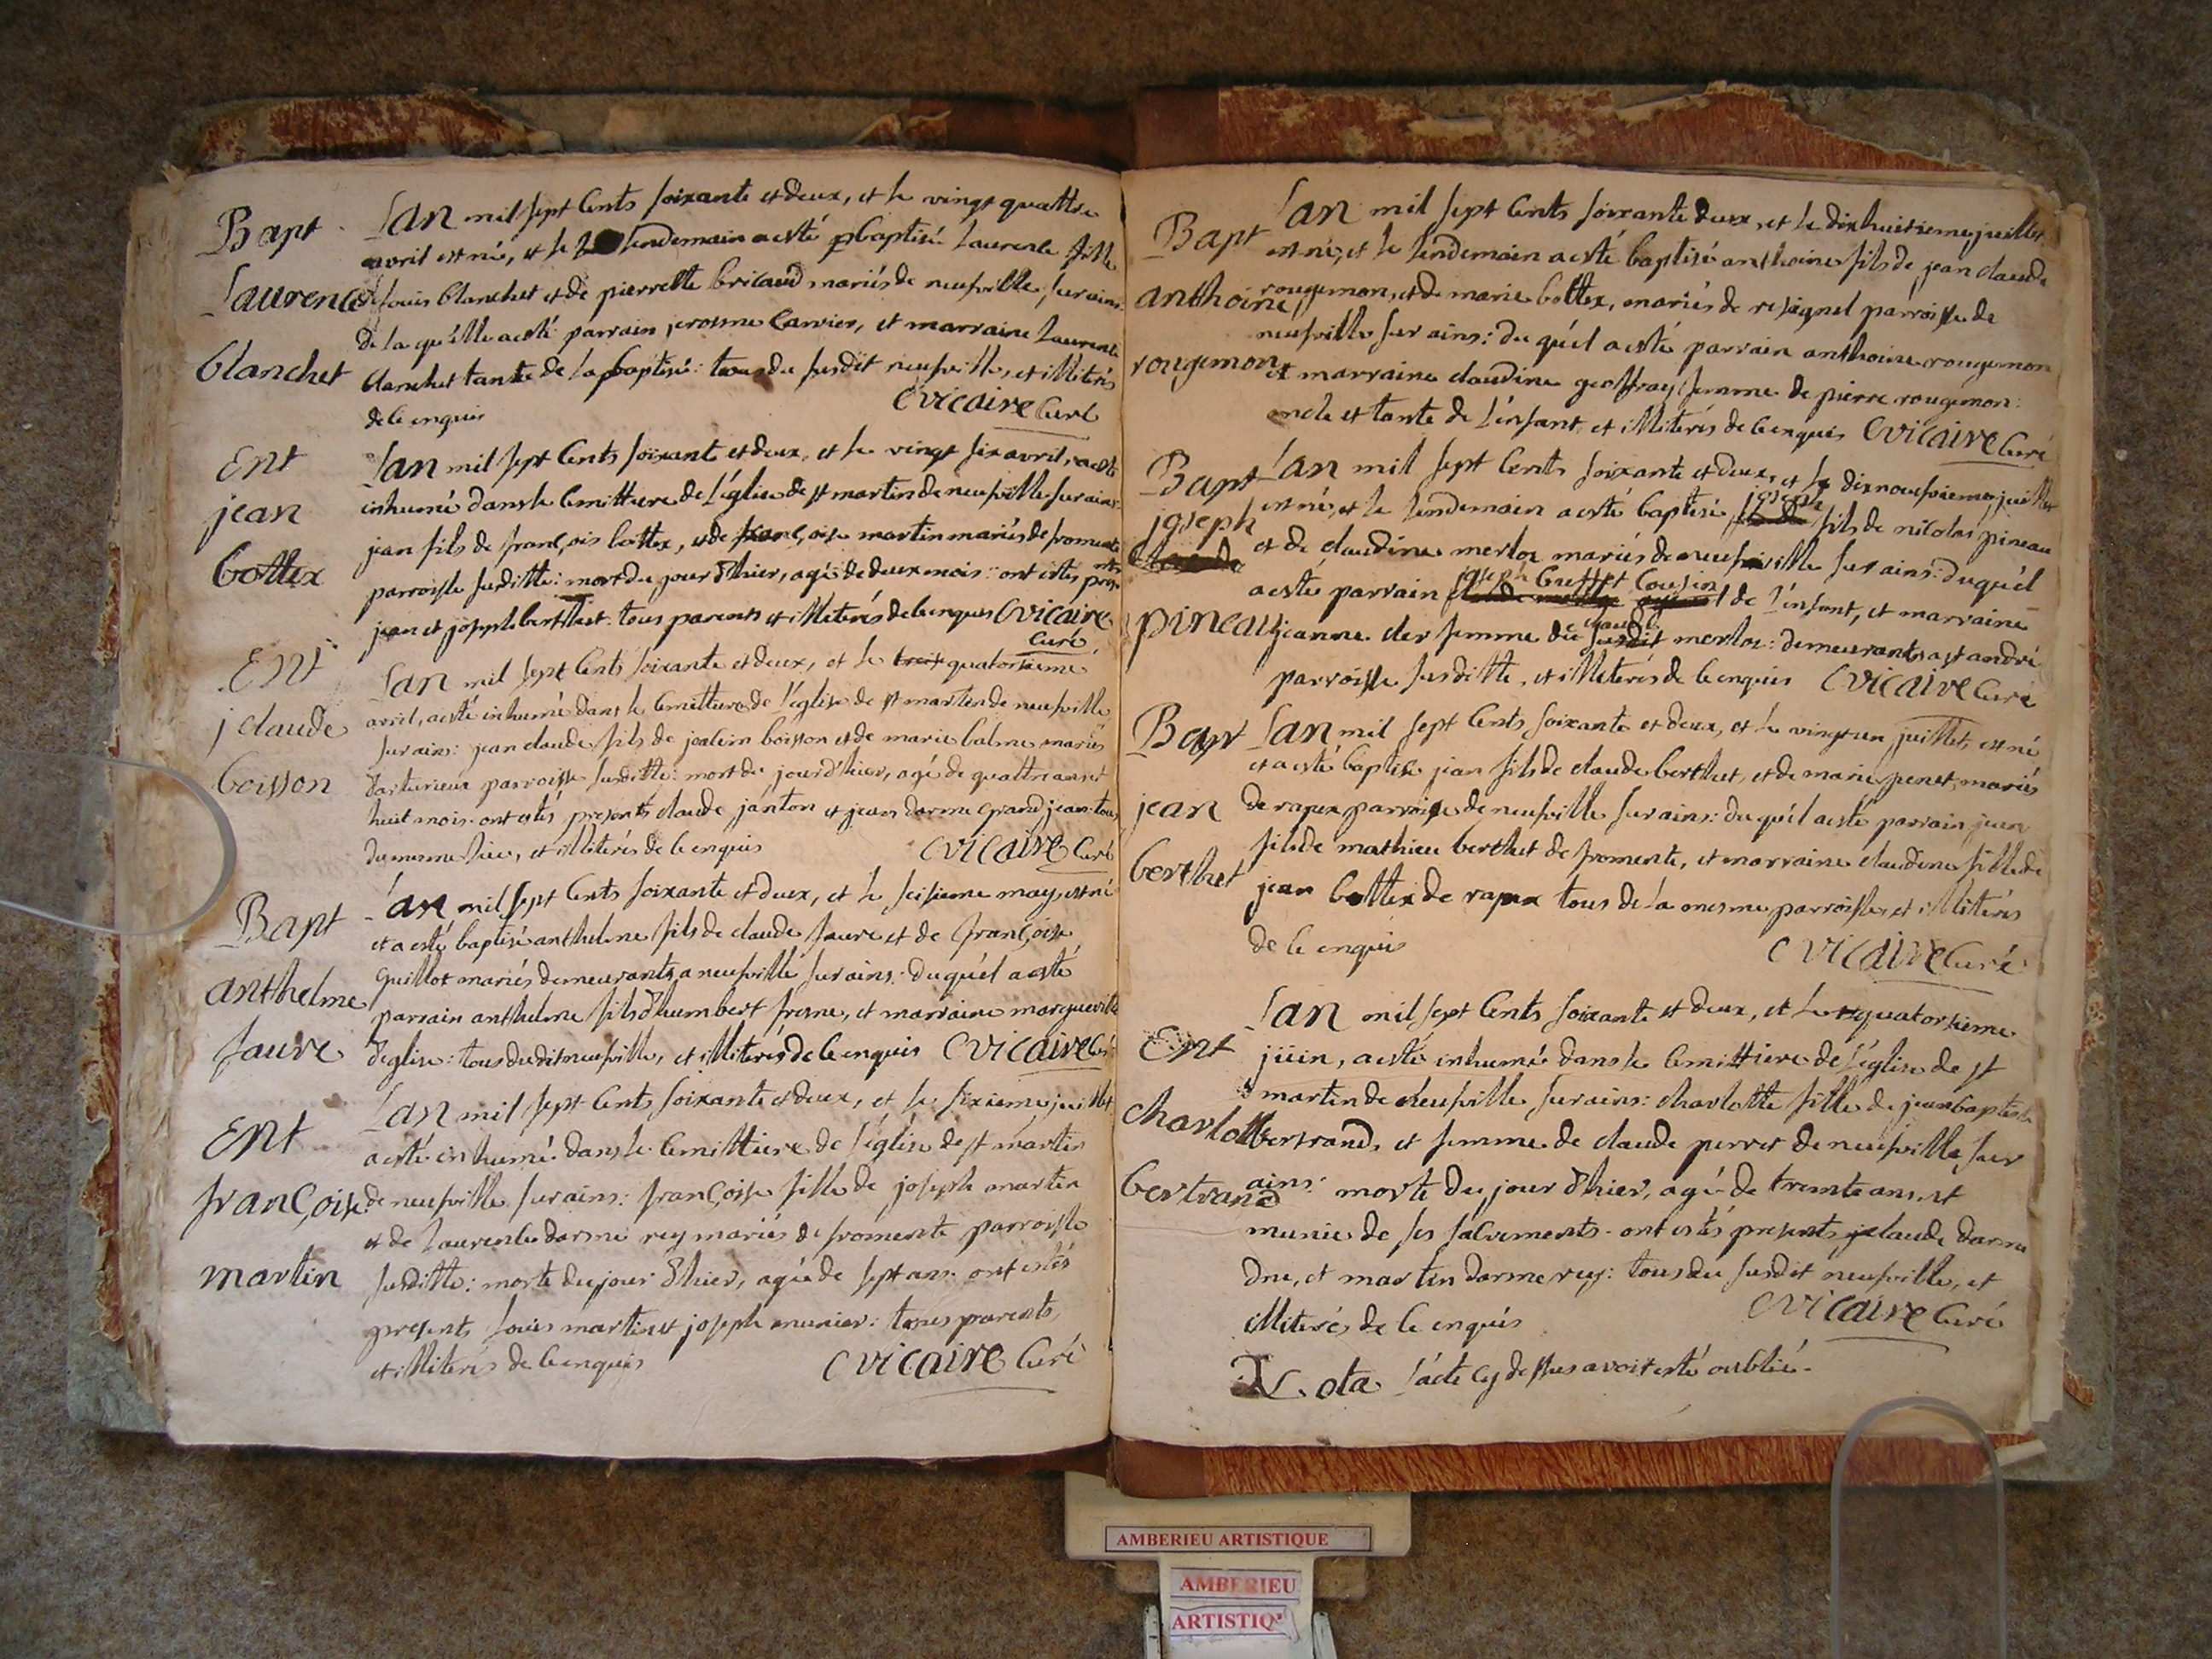 Bapt
Laurence
blanchet
L'an mil sept cents soixante et deux, et le vingt quattre
avril est né, et le lendemain a esté baptisé laurence fille
de louis blanchet et de pierrette bricaud mariés de neufville sur ains:
de la qu'elle a esté parrain jerosme carrier, et marraine laurence
blanchet tante de la baptisé: tous du susdit neufville, et illiterés
de ce enquis
C vicaire Curé
Ent
jean
bottex
L'an mil sept cents soixante et deux, et le vingt six avril, a esté
inhumé dans le cemittiere de l'église de st martin de neufville sur ains
jean fils de françois bottex, et de françoise martin mariés de fromente
parroisse susditte: mort du jour d'hier, agé de deux mois: ont estés pres
ents
jean et joseph berthet: tous parents et illiterés de ce enquis C vicaire
Curé
Ent
j claude
boisson
L'an mil sept cents soixante et deux, et le trois quatorzieme
avril, a esté inhumé dans le cemittiere de l'église de st martin de neufville
sur ains: jean claude fils de boisson et de marie balme mariés
parroisse susditte: mort du jour d'hier, agé de quattre ans et
huit mois. ont estés presents claude janton et jean darme grand jean: tous
du mesme lieu, et illiterés de ce enquis
C vicaire Curé
Bapt
anthelme
faure
L'an mil sept cents soixante et deux, et le seisieme may, est né
et a esté baptisé anthelme fils de claude faure et de françoise
guillot mariés demeurants a neufville sur ains: du qu'el a esté
parrain anthelme fils d'humbert fresne, et marraine margueritte
d'eglise: tous dudit neufville, et illiterés de ce enquis C vicaire Curé
Ent
françoise
martin
L'an mil sept cents soixante et deux, et le sixieme juillet
a esté inhumé dans le cemittiere de l'église de st martin
de neufville sur ains: françoise fille de joseph martin
et de laurence darme rey mariés de fromente parroisse
susditte: morte du jour d'hier, agée de sept ans. ont estés
presents louis martin et joseph munier: tous parents,
et illiterés de ce enquis
C vicaire Curé
Bapt
anthoine
rougemon
L'an mil sept cents soixante deux, et le dixhuitieme juillet
est né, et le lendemain a esté baptisé anthoine fils de jean claude
rougemon, et de marie bottex, mariés de resignel parroisse de
neufville sur ains: du qu'el a esté parrain anthoine rougemon
et marraine claudine geoffray femme de pierre rougemon:
oncle et tante de l'enfant, et illiterés de ce enquis C vicaire Curé
Bapt
joseph
pineau
L'an mil sept cents soixante et deux, et le dixneufvieme juillet
est né, et le lendemain a esté baptisé joseph fils de nicolas pineau
et de claudine merloz mariés de neufville sur ains: du qu'el
a esté parrain joseph cousin de l'enfant, et marraine
claude
jeanne der femme du susdit merloz: demeurants a st andré
parroisse susditte, et illiterés de ce enquis C vicaire Curé
Bapt
jean
berthet
L'an mil sept cents soixante et deux, et le vingt un juillet, est né
et a esté baptisé jean fils de claude berthet, et de marie penet, mariés
de rapex parroisse de neufville sur ains: du qu'el a esté parrain jean
fils de mathieu berthet de fromente, et marraine claudine fille de
jean bottex de rapex tous de la mesme parroisse, et illiterés
de ce enquis
C vicaire Curé
Ent
charlotte
bertrand
L'an mil sept cents soixante et deux, et le quatorzieme
juin, a esté inhumée dans le cemittiere de l'église de st
martin de neufville sur ains: charlotte fille de jean baptiste
bertrand, et femme de claude perret de neufville sur
ains: morte du jour d'hier, agé de trente ans. et
munie de ses sacrements. ont estés presents claude darme
dne, et martin darme rey: tous du susdit neufville, et
illiterés de ce enquis
C vicaire Curé
Nota l'acte cy dessus avoit esté oublié.
AMBERIEU ARTISTIQUE
AMBERIEU
ARTISTIQ